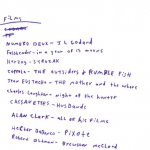 FILMS
NUMERO DEUX - J L Godard
Fassbender - in a year of 13 moons
Herzog - STROSZEK
Coppola - THE OUTSIDERS & RUMBLE FISH
Jean EUSTACHE - THE mother and the whore
Charles Laughton - night of the hunter
CASSAVETES - HUSBANDS
ALAN CLARK - all of his films
Hector Babenco - PIXOTE
Robert Altman - Brewster McCloud